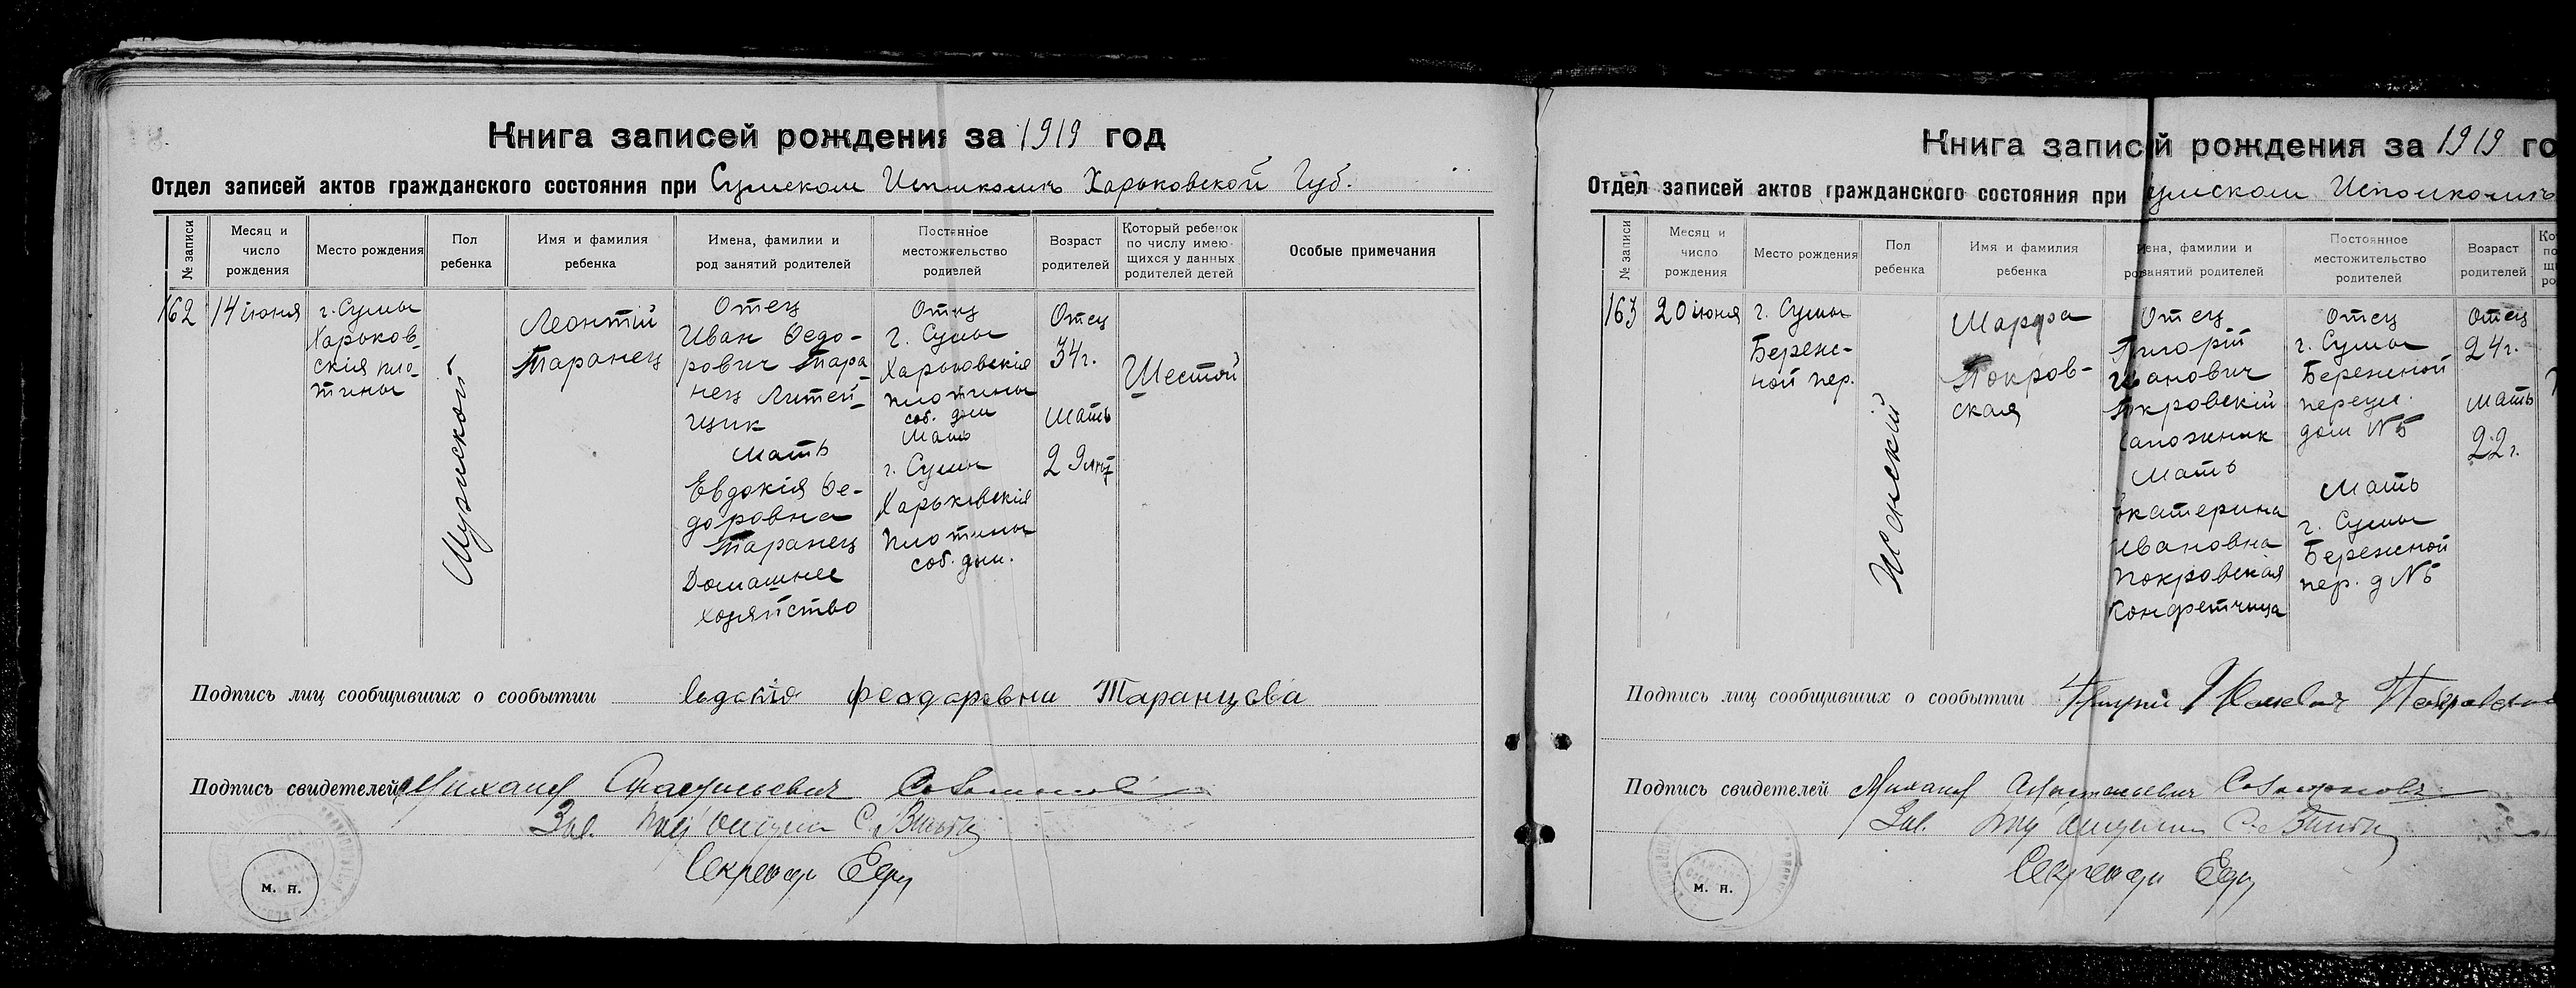 Книга записей рождения за 1919 год
Отдел записей актов гражданского состояния при Сумском Исполкомъ Харьковской Губ.
№ записи
Месяц и
число
рождения
Место рождения
Пол
ребенка
Имя и фамилия
ребенка
Имена, фамилии и
род занятий родителей
Постоянное
местожительство
родителей
Возраст
родителей
Который ребенок
по числу имею-
щихся у данных
родителей детей
Особые примечания
162
14 июня
г. Сумы
Харьков-
скія пло-
тины
Мужской
Леонтій
Таранец
Отец
Иван Ѳедо-
рович Тара
нец Литей-
щик
Мать
Евдокія Ѳе-
доровна
Таранец
Домашнее
хозяйство
Отец
г. Сумы
Харьковскія
плотины
соб. дом
Мать
г. Сумы
Харьковскія
плотины
соб. дом.
Отец
34г.
Мать
29 лѣт
Шестой
Подпись лиц сообщивших о сообытии Феодоровни Таранцова
Подпись свидетелей Михаил
Зав.
Секретарь
М. П.
Книга записей рождения за 1919 го
Отдел записей актов гражданского состояния при умском Исполкомъ
№ записи
Месяц и
число
рождения
Место рождения
Пол
ребенка
Имя и фамилия
ребенка
Имена, фамилии и
род занятий родителей
Постоянное
местожительство
родителей
Возраст
родителей
163
20 июня
г. Сумы
Береж-
ной пер.
Женскій
Марфа
Покров-
ская
Отец
Григорій
Иванович
Покровскій
сапожник
Мать
Екатерина
Ивановна
Покровская
Конфетчица
Отец
г. Сумы
Бережной
переул.
дом № 5
Мать
г. Сумы
Бережной
пер. д № 5
Отец
24г.
Мать
22г.
Подпись лиц сообщивших о сообытии
Подпись свидетелей Михаил
Зав.
Секретарь
М. П.